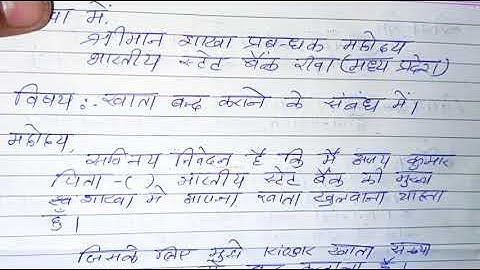 में.
श्रीमान शाखा प्रबन्धक महोदय
भारतीय स्टेट बैंक रीवा (मध्य प्रदेश)
विषय:- खाता बन्द कराने के संबंध में।
महोदय,
सविनय निवेदन है कि मैं अजय कुमार
पिता -( ) भारतीय स्टेट बैंक की मुख्य
शाखा मे अपना खाता खुलवाना चाहता
हूँ।
जिसके लिए मुझे खाता संख्या